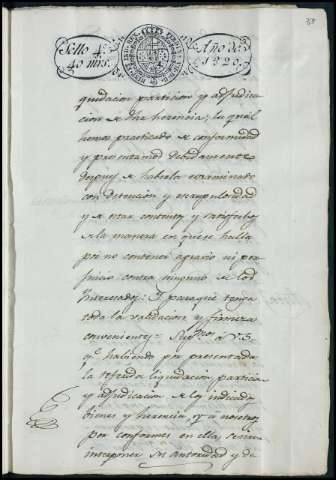 38
Sello 4º
40 mrs.
Año de
1820.
quidacion particion y adjudica-
cion de dha herencia; la qual
hemos practicado de conformidad
y presentamos debidamente
despues de haberla examinado
con detencion y escrupulosidad
y de estar contentos y satisfechos
de la manera en que se halla
pr no contener agravio ni per-
juicio contra ninguno de los
Interesados: I para que tenga
toda la validacion y firmeza
conveniente=
Supcos a V.S.
qe habiendo por presentada
la referida liquidacion, particion
y adjudicacion de los indicados
bienes y herencia, y a nosotros
por conformes en ella, se sirva
interponer su autoridad y de